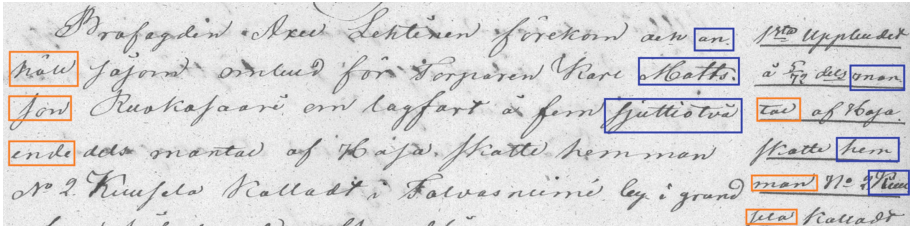 Profogden Axel Lehtinen förekom och an-
höll såsom ombud för Torparen Karl Matts-
son Ruokasaari om lagfart å fem sjuttiotvå
endedels mantal af Haja skatte hemman
No 2 Kuusela kalladt i Talvasniemi by i grund
1sta Uppbudet
å 5/72 dels man-
tal af Haja
skatte hem
man No 2 Kuu
sela kalladt